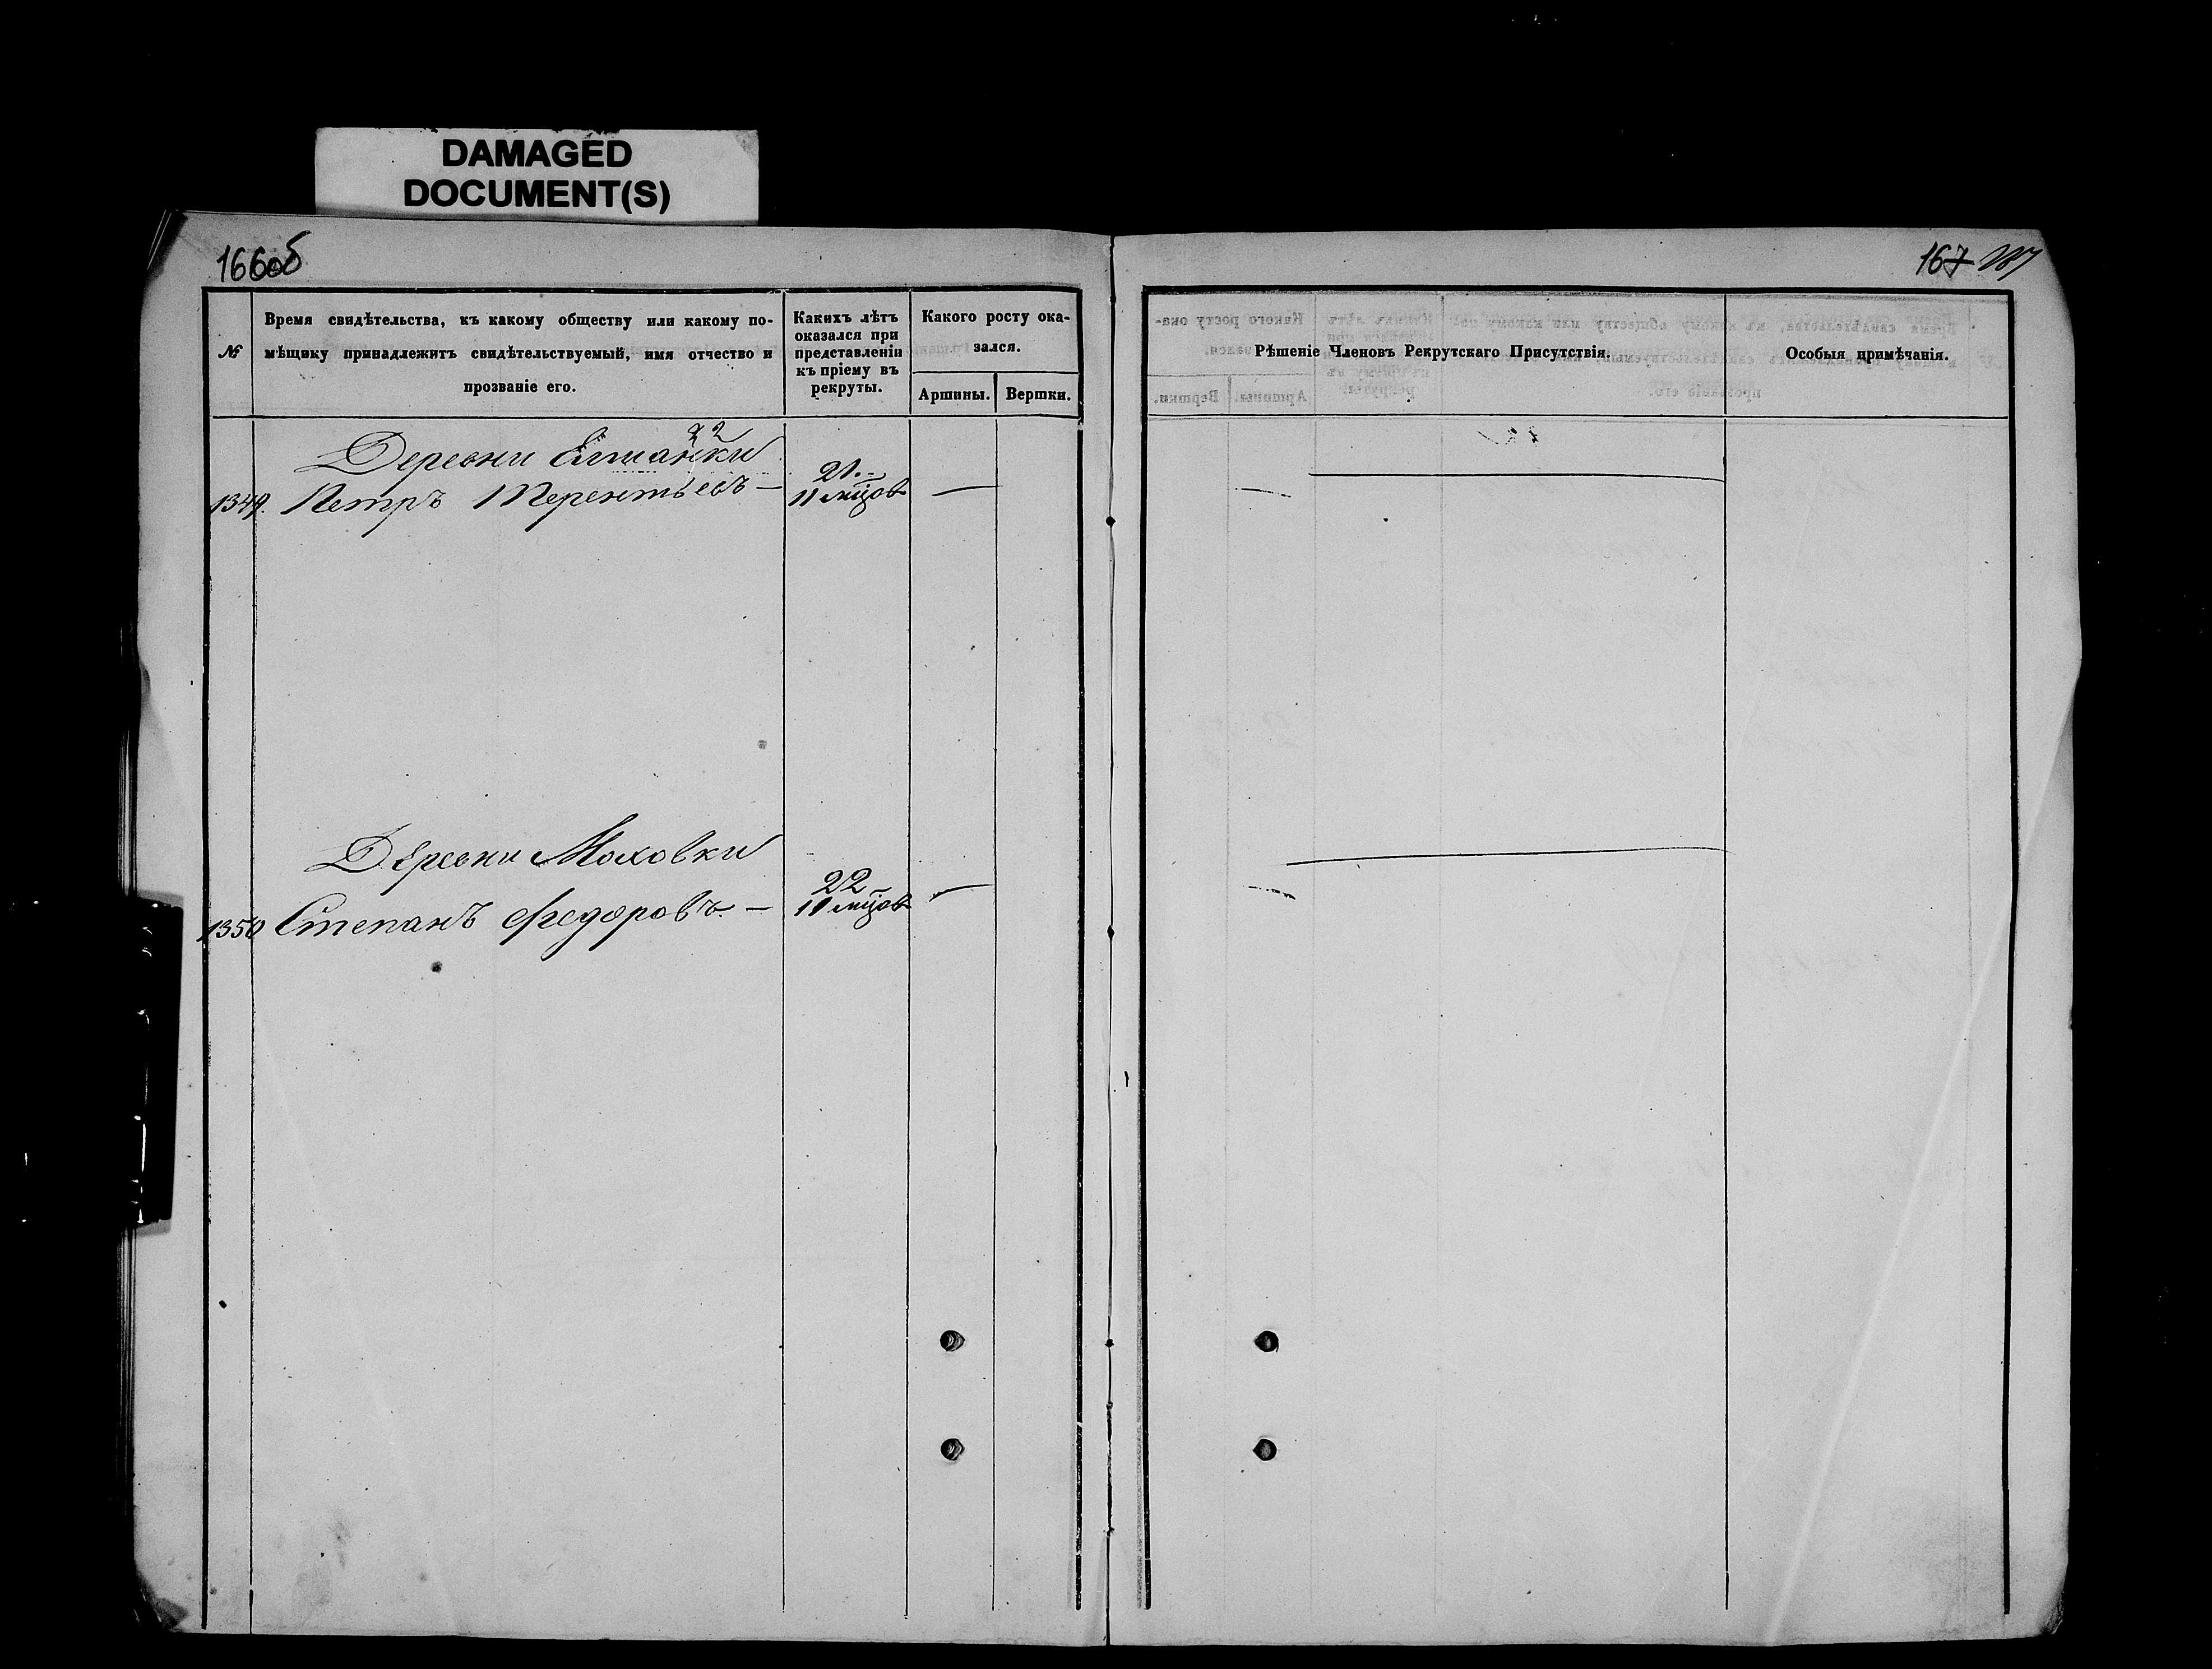 DAMAGED
DOCUMENT(S)
166об
167
№
Время свидѣтельства, къ какому обществу или какому по-
мѣщику принадлежитъ свидѣтельствуемый, имя отчество и
прозваніе его.
Какихъ лѣтъ
оказался при
представленіи
къ пріему въ
рекруты.
Какого росту ока-
зался.
Аршины.
Вершки.
Рѣшеніе Членовъ Рекрутскаго Присутствія.
Особыя примѣчанія.
22
Деревни Елшанки
1349. Петръ Терентьевъ —
21.
11 мцов
—
Деревни Моховки
1350 Степанъ Федоровъ. —
22
11 мцов
—